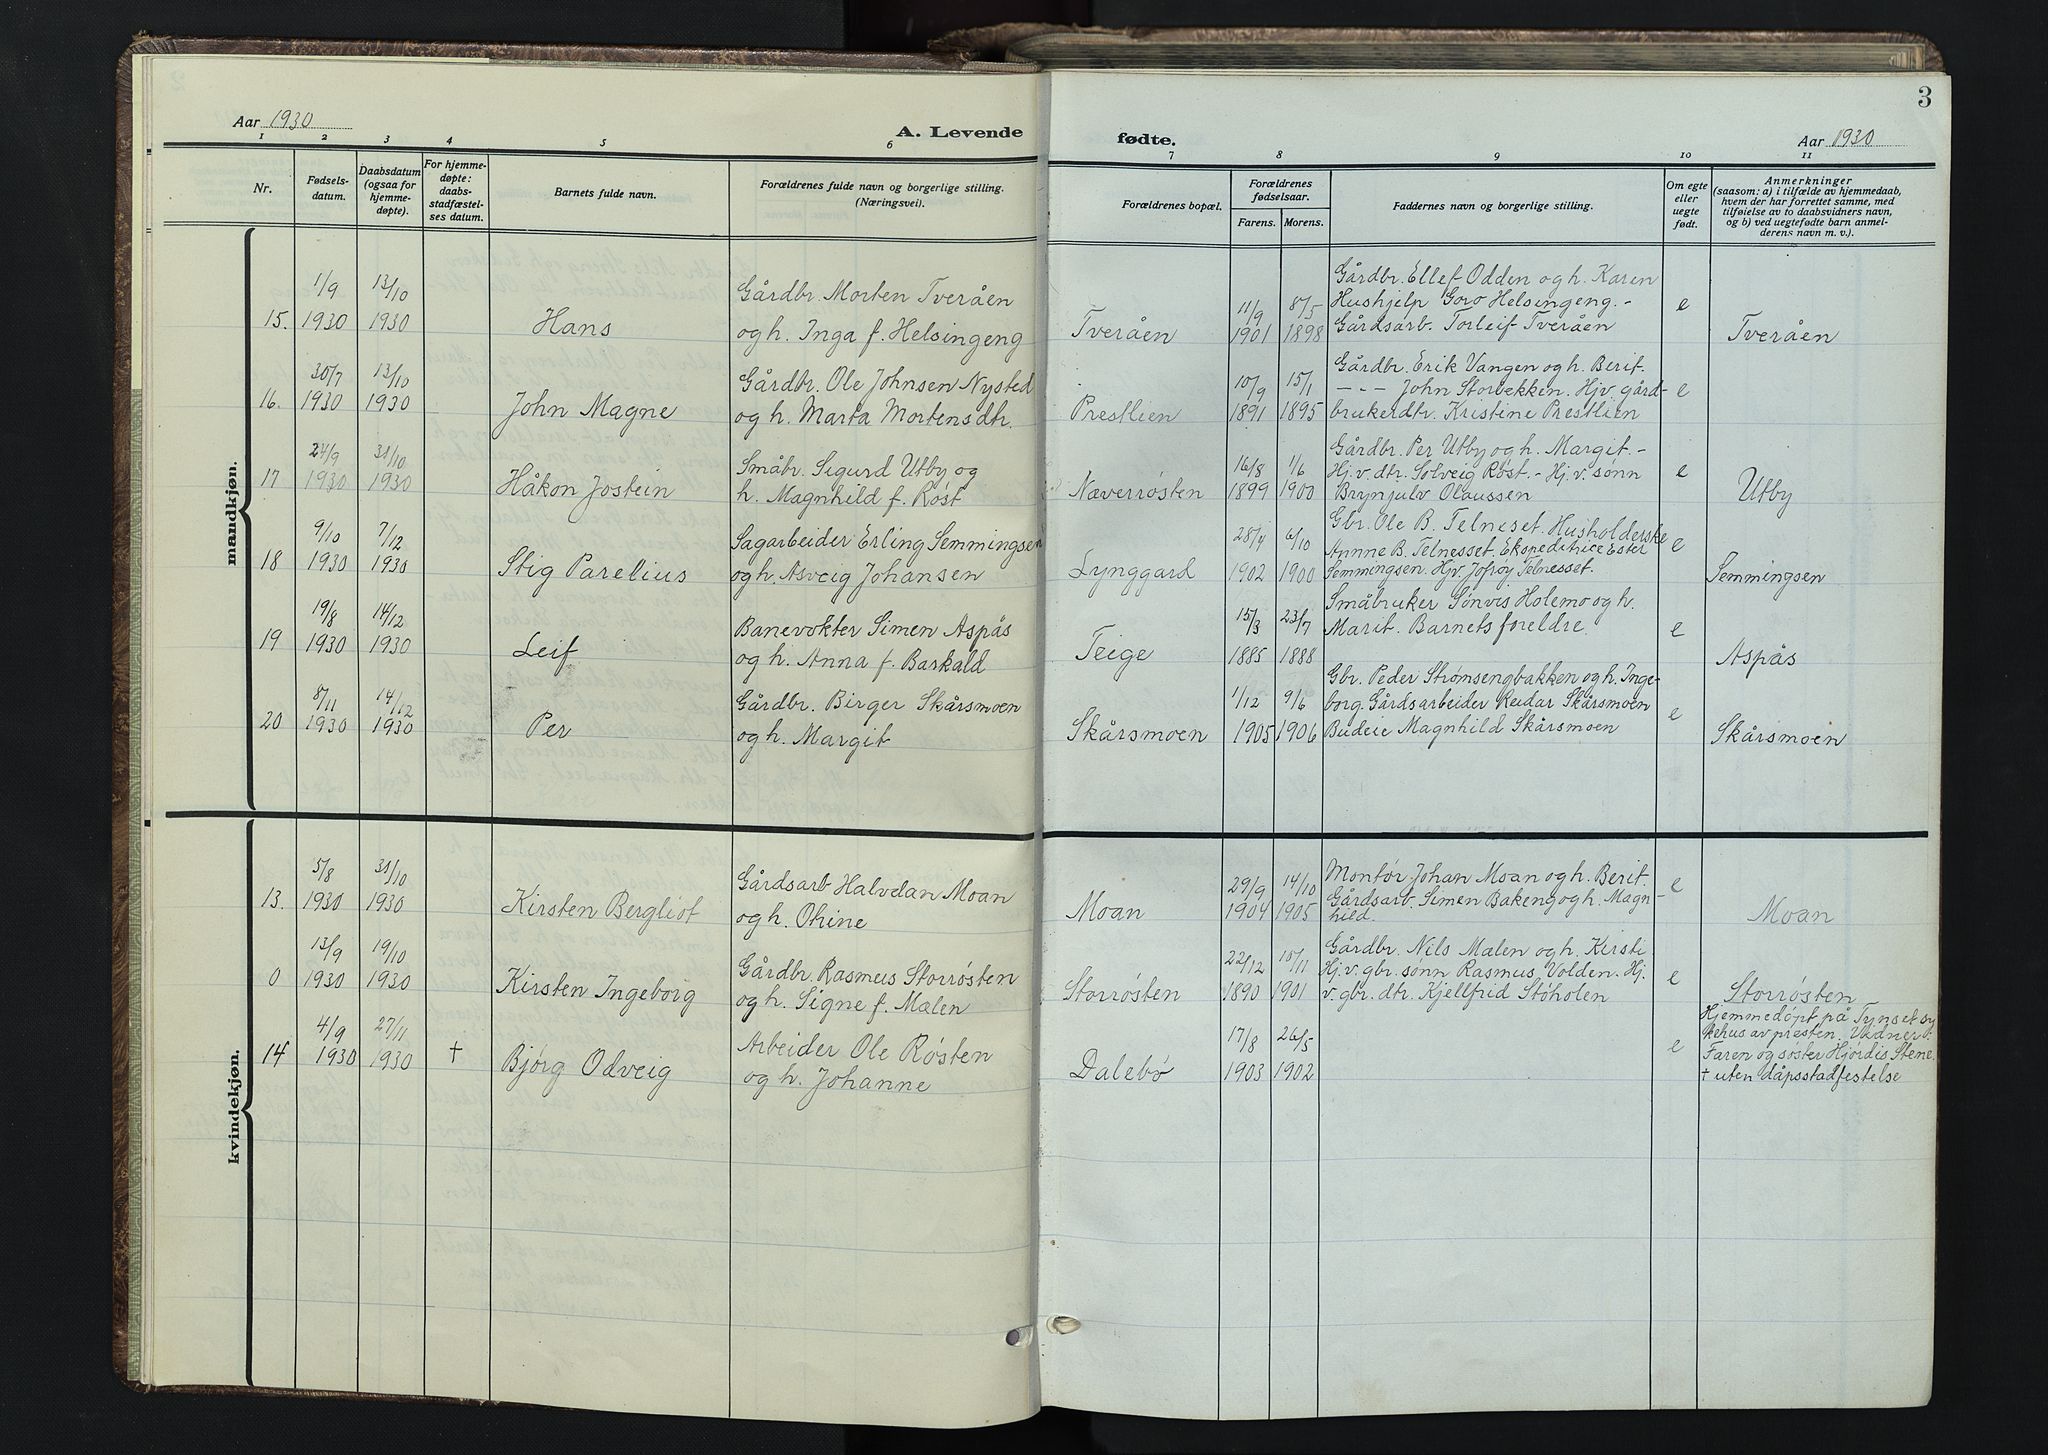 3
Aar 1930
A. Levende
fødte.
Aar 1930
1 2 3 4 5 6 7 8 9 10 11
Nr.
Fødsels-
datum.
Daabsdatum
(ogsaa for
hjemme-
døpte).
For hjemme-
døpte:
daabs-
stadfæstel-
ses datum.
Barnets fulde navn.
Forældrenes fulde navn og borgerlige stilling.
(Næringsvei).
Forældrenes bopæl.
Forældrenes
fødselsaar.
Farens. Morens.
Faddernes navn og borgerlige stilling.
Om egte
eller
uegte
født.
Anmerkninger
(saasom: a) i tilfælde av hjemmedaab,
hvem der har forrettet samme, med
tilføielse av to daabsvidners navn,
og b) ved uegtefødte barn anmel-
derens navn m. v.).
mandkjøn.
15. 1/9 1930 13/10 1930 Hans
Gårdbr. Morten Tveråen
og h. Inga f. Helsingeng
Tveråen 11/9 1901 8/5 1898
Gårdbr. Ellef Odden og h. Karen
Hushjelp Goro Helsingeng. -
Gårdsarb. Torleif Tveråen
e Tveråen
16. 30/7 1930 13/10 1930 John Magne
Gårdbr. Ole Johnsen Nysted
og h. Marta Mortensdtr.
Prestlien 10/9 1891 15/1 1895
Gårdbr. Erik Vangen og h. Berit.
- - - John Storbekken. Hjv. gård-
brukerdtr. Kristine Prestlien
e
17 24/9 1930 31/10 1930 Håkon Jostein
Småbr. Sigurd Utby og
h. Magnhild f. Røst
Næverrøsten 16/8 1899 1/6 1900
Gårdbr. Per Utby og h. Margit. -
Hj. v. dtr. Solveig Røst. - Hj. v. sønn
Brynjulv Olaussen
e Utby
18 9/10 1930 7/12 1930 Stig Parelius
Sagarbeider Erling Semmingsen
og h. Asveig Johansen
Lynggard 28/4 1902 6/10 1900
Gbr. Ole B. Telneset. Husholderske
Annne B. Telnesset. Ekspeditrice Ester
Semmingsen. Hjv. Jofrøy Telnesset.
e Semmingsen
19 19/8 1930 14/12 1930 Leif
Banevokter Simen Aspås
og h. Anna f. Barkald
Teige 15/3 1885 23/7 1888
Småbruker Sønvis Holemo og h.
Marit. Barnets foreldre.
e Aspås
20 8/11 1930 14/12 1930 Per
Gårdbr. Birger Skårsmoen
og h. Margit
Skårsmoen 1/12 1905 9/6 1906
Gbr. Peder Strømsengbakken og h. Inge-
borg. Gårdsarbeider Reidar Skårsmoen
Budeie Magnhild Skårsmoen
e Skårsmoen
kvindekjøn.
13. 5/8 1930 31/10 1930 Kirsten Bergliot
Gårdsarb Halvdan Moan
og h. Othine
Moan 29/9 1904 14/10 1905
Montør Johan Moan og h. Berit.
Gårdsarb. Simen Bakeng og h. Magn-
hild.
e Moan
0 13/9 1930 19/10 1930 Kirsten Ingeborg
Gårdbr. Rasmus Storrøsten
og h. Signe f. Mælen
Storrøsten 22/12 1890 15/11 1901
Gårdbr. Nils Malen og h. Kirsti.
Hj. v. gbr. sønn Rasmus Volden. Hj.
v. gbr. dtr. Kjellfrid Støholen
e Storrøsten
14 4/9 1930 27/11 1930 † Bjørg Odveig
Arbeider Ole Røsten
og h. Johanne
Dalebø 17/8 1903 26/5 1902
e
Hjemmedøpt på Tynset sy
kehus av presten. Vidner:
Faren og søster Hjørdis Stene.
† uten dåpsstadfestelse